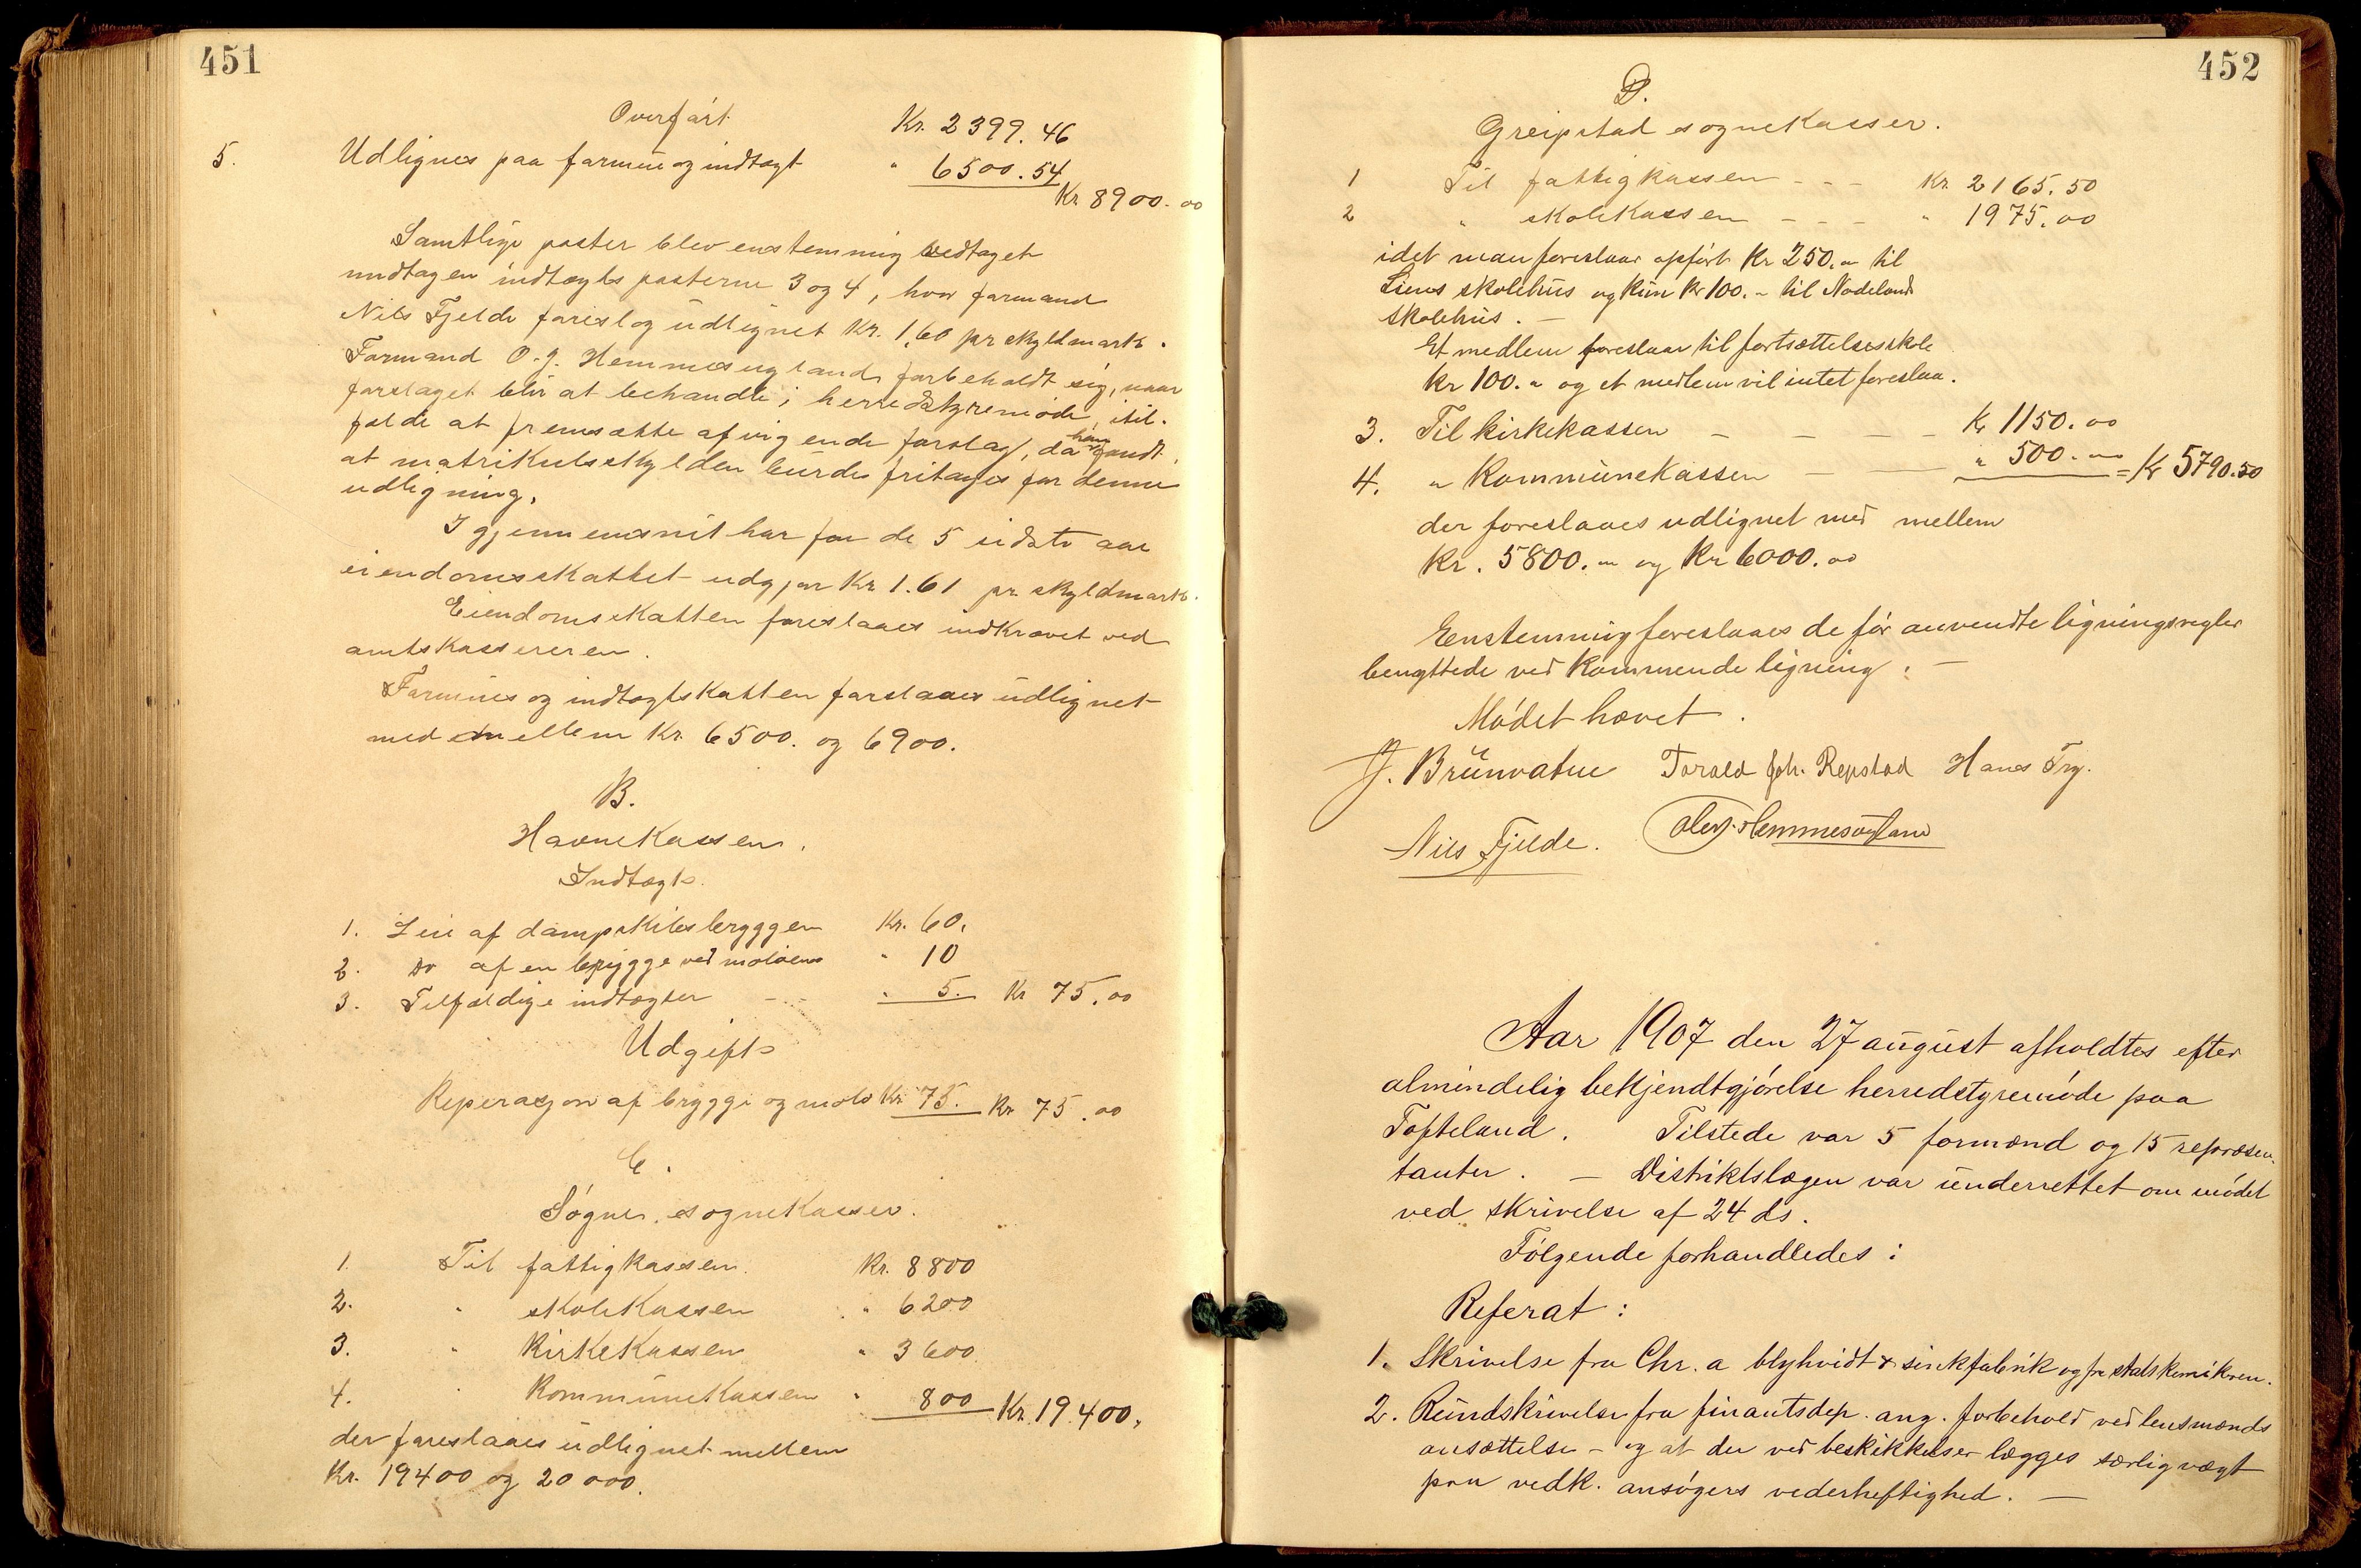 451
Overført Kr. 2399.46
5. Udlignes paa formue og indtægt " 6500.54
Kr. 8900.00
Samtlige poster blev enstemmig vedtaget
undtagen indtægts posterne 3 og 4, hvor formand
Nils Fjelde foreslog udlignet Kr. 1,60 pr skyldmark.
Formand O. J. Hemmesugland forbeholdt sig, naar
forslaget blir at behandle i herredstyremøde, itil-
fælde at fremsætte afvigende forslag, da han fandt,
at matrikulsskylden burde fritages for denne
udligning.
I gjennemsnit har for de 5 sidste aar
eiendomsskattet udgjør Kr. 1.61 pr. skyldmark.
Eiendomsskatten foreslaaes indkrævet ved
amtskassereren.
Formues og indtægtskatten forslaaes udlignet
med mellem Kr. 6500. og 6900.
B.
Havnekassen.
Indtægt
1. Leie af dampskibsbryggen Kr. 60.
2. Do af en brygge ved moloen " 10
3. Tilfældige indtægter - - - " 5. Kr 75.00
Udgift
Reperasjon af brygge og molo Kr. 75. Kr 75.00
C.
Søgne sognekasser.
1. Til fattigkassen. Kr. 8800
2. " skolekassen " 6200
3. " Kirkekassen " 3600
4. " Kommunekassen " 800 Kr. 19.400.
der foreslaaes udlignet mellem
Kr. 19400 og 20000.
452
D.
Greipstad sognekasser.
1 Til fattigkassen - - - Kr. 2165.50
2 " skolekassen - - - " 1975.00
idet man foreslaar opført Kr 250.00 til
Liens skolehus og kun Kr 100.- til Nodeland
skolehus. -
Et medlem foreslaar til fortsættelsesskole
Kr 100.00 og et medlem vil intet foreslaa.
3. Til kirkekassen - - - - Kr 1150.00
4. " Kommunekassen - - " 500.00 = Kr 5790.50
der foreslaaes udlignet med mellem
Kr. 5800.00 og Kr 6000.00
Eenstemmig foreslaaes de før anvendte ligningsregler
benyttede ved kommende ligning. -
Mødet hævet.
J. Brunvatne Torald Joh. Repstad Hans Try.
Nils Fjelde. Ole J. Hemmesugland
Aar 1907 den 27 august afholdtes efter
almindelig bekjendtgjørelse herredstyremøde paa
Tofteland. Tilstede var 5 formænd og 15 repræsen-
tanter. - Distriktslægen var underrettet om mødet
ved skrivelse af 24 ds.
Følgende forhandledes:
Referat:
1. Skrivelse fra Chr.a blyhvidt & sinkfabrik og fra statskemikren.
2. Rundskrivelse fra finantsdep. ang. forbehold ved lensmænds
ansættelse - og at der ved beskikkelser lægges særlig vægt
paa vedk. ansøgers vederheftighed. -